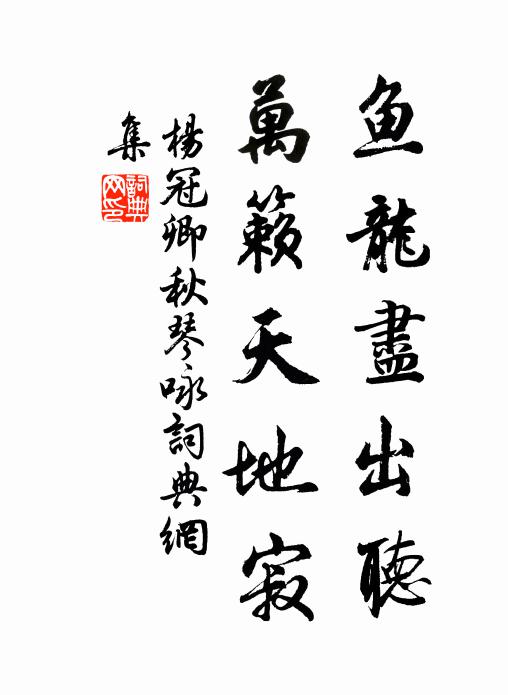 鱼龍盡出聽
萬籟天地寂
楊冠卿秋琴咏詞典網
集
詞典
网印